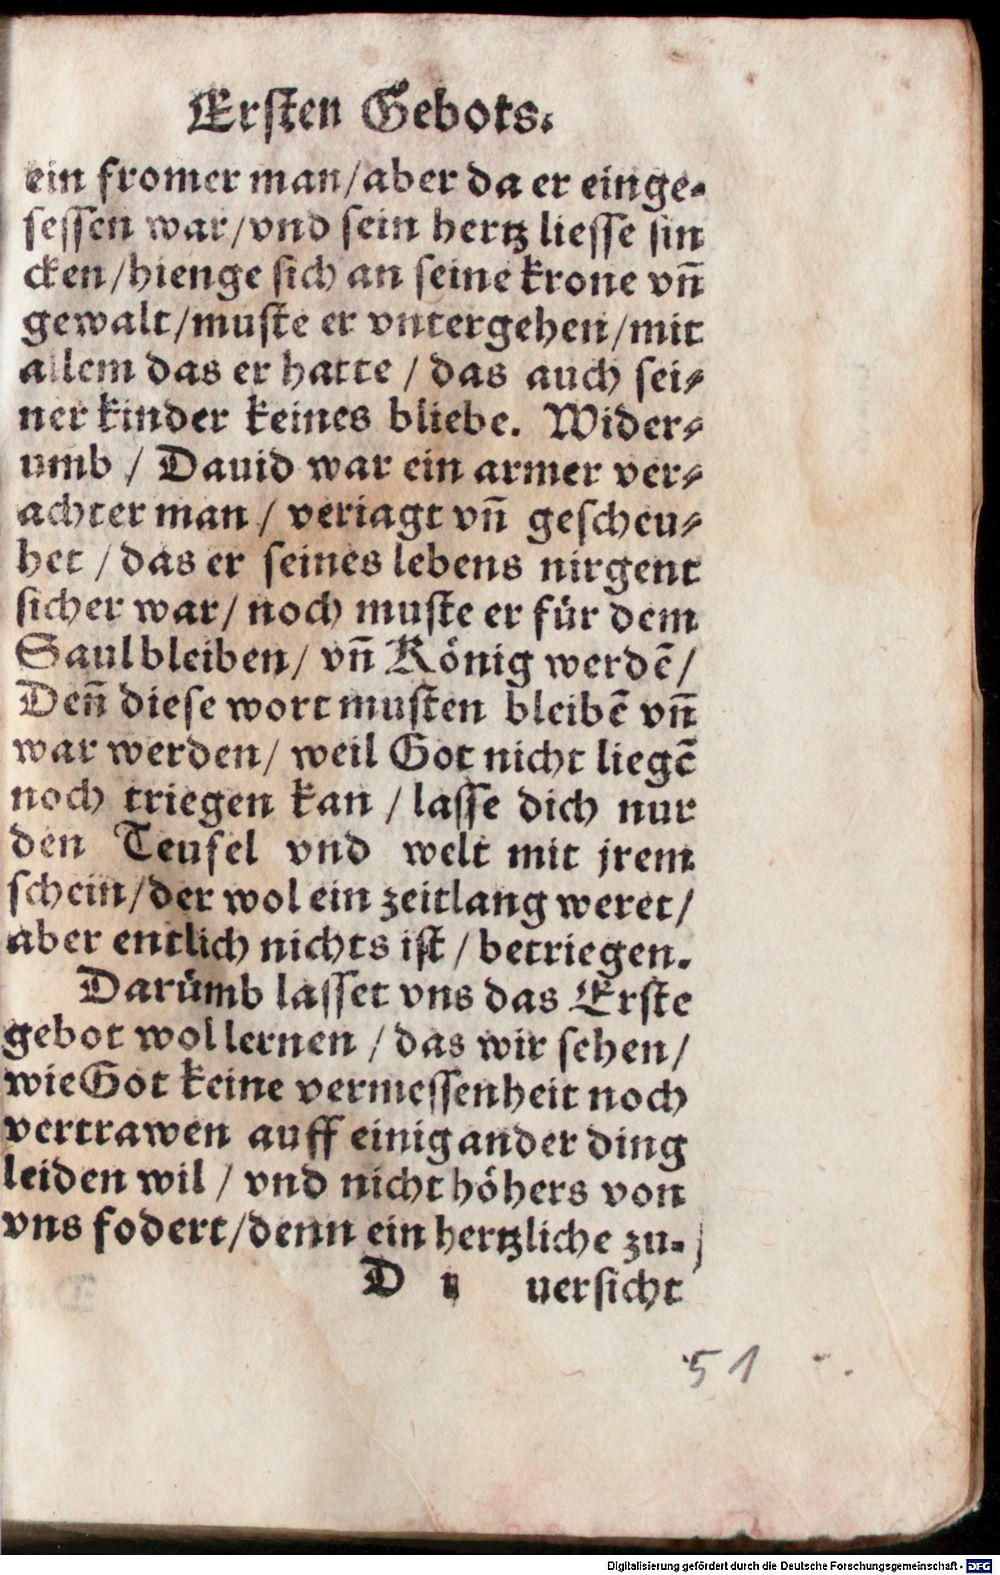 Ersten Gebots.
ein fromer man/aber da er einge-
sessen war/vnd sein hertz liesse sin
cken/hienge sich an seine krone vñ
gewalt/muste er vntergehen/mit
allem das er hatte / das auch sei-
ner kinder keines bliebe. Wider-
umb / Dauid war ein armer ver-
achter man / veriagt vñ gescheu-
het / das er seines lebens nirgent
sicher war/ noch muste er für dem
Saul bleiben/ vñ König werdē/
Deñ diese wort musten bleibē vñ
war werden/ weil Got nicht liegē
noch triegen kan / lasse dich nur
den Teufel vnd welt mit jrem
schein/der wol ein zeitlang weret/
aber entlich nichts ist / betriegen.
Darümb lasset vns das Erste
gebot wol lernen / das wir sehen/
wie Got keine vermessenheit noch
vertrawen auff einig ander ding
leiden wil / vnd nicht höhers von
vns fodert/denn ein hertzliche zu-
D ij uersicht
51
Digitalisierung gefördert durch die Deutsche Forschungsgemeinschaft - DFG